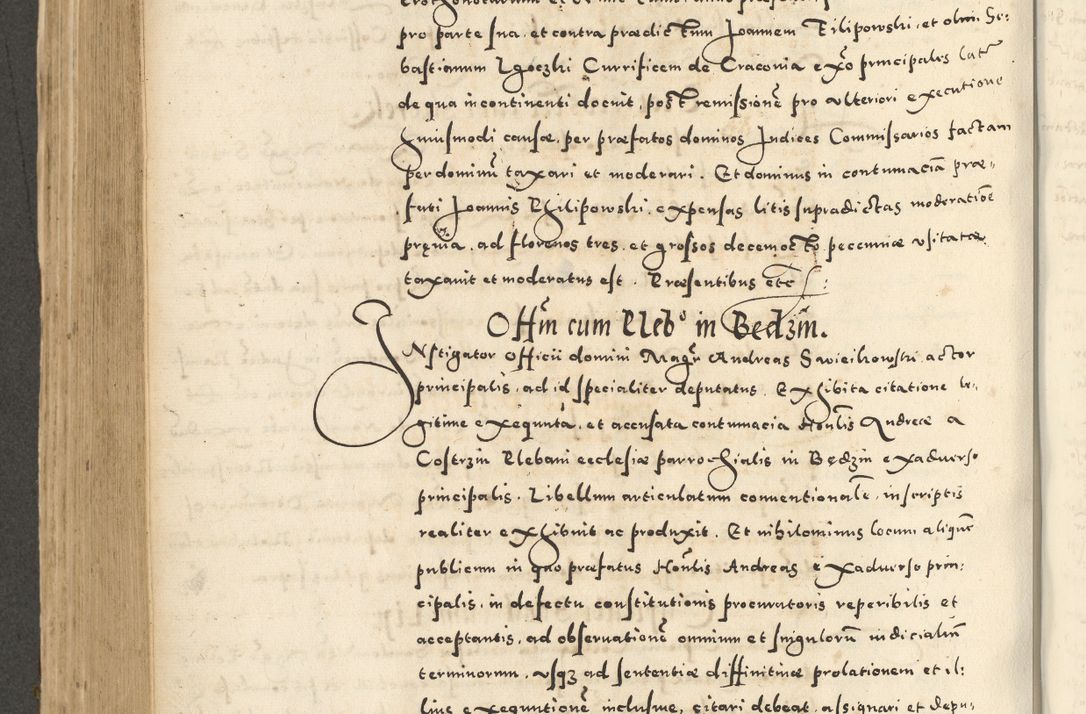 pro parte sua, et contra prædictum Joannem Filipowski, et olim Se:
bastianum Lgoczki Currificem de Cracovia ex͞o principales lat͞r
de qua in continenti docuit, post remissione͞ pro ulteriori executione
huiusmodi causæ, per præfatos dominos Judices Commissarios factam
per dominu͞ taxari et moderari. Et dominus in contumacia͞ præ-
fati Joannis Philipowski, expensas litis supradictas moderatio͞e
prævia, ad florenos tres, et grossos decem octo pecuniæ usitatæ
taxavit et moderatus est. Præsentibus etc:
Off͞m cum Pleb͞o in Będzin.
INstigator Officii domini Mag͞ri Andreas Swieikowski, actor
principalis, ad id specialiter deputatus, Exhibita citatione le-
gitime exequuta, et accusata contumacia Hon͞lis Andreæ a
Costrzin Plebani ecclesiæ parrochialis in Będzin ex adverso
principalis. Libellum articulatum conventionale͞, in scriptis
realiter exhibuit ac produxit. Et nihilominus locum aliquē
publicum in quo præfatus Hon͞lis Andreas ex adverso prin:
cipalis, in defectu constitutionis procuratoris reperibilis et
acceptantis, ad observatione͞ omnium et singuloru͞ iudicialiu͞
terminorum, usq3 ad sententiæ diffinitivæ prolationem et il:
lius exequutione͞ inclusive, citari debeat, assignari et depu-